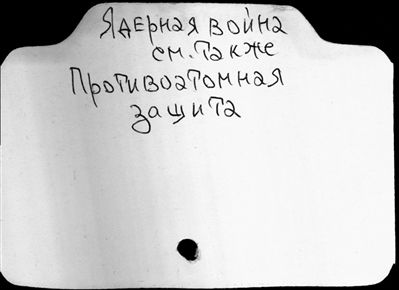 Ядерная война
см. также
Противоатомная
защита